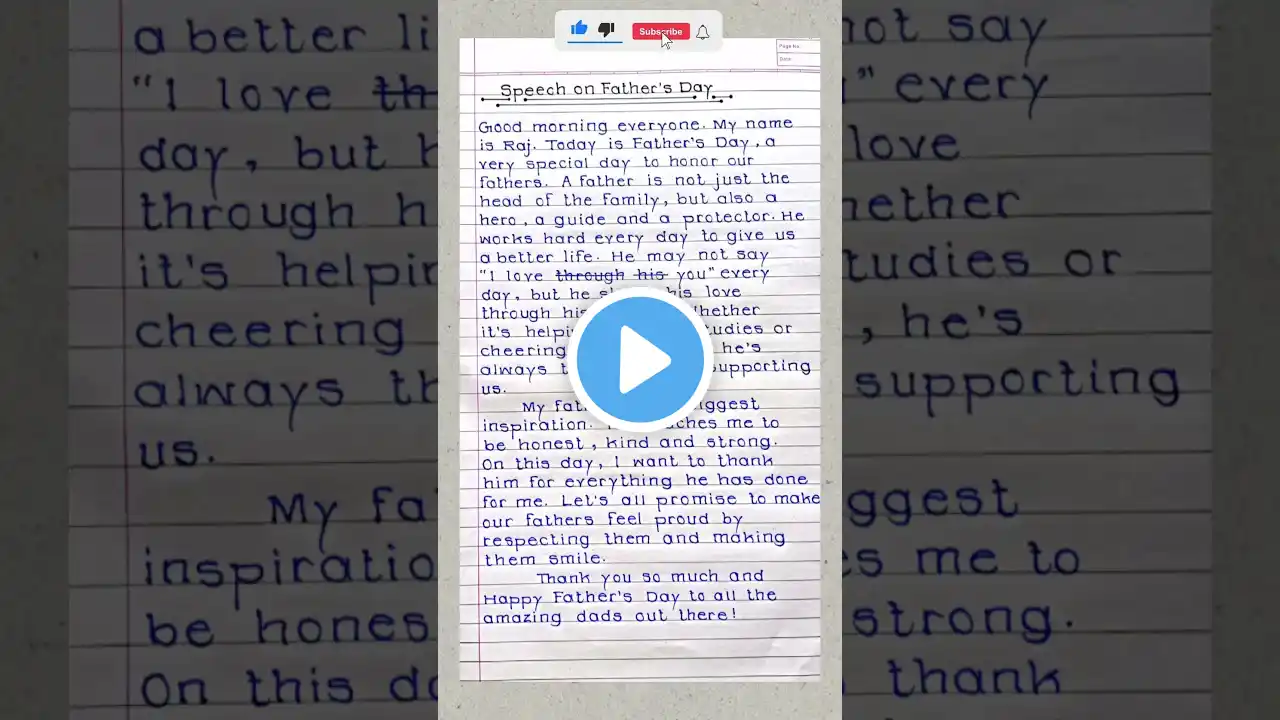 Subscribe
Page No:
Date:
Speech on Father's Day
Good morning everyone. My name
is Raj. Today is Father's Day, a
very special day to honor our
fathers. A father is not just the
head of the family, but also a
hero, a guide and a protector. He
works hard every day to give us
a better life. He may not say
"I love through his you" every
day, but he his love
through
it's or
cheering he's
always supporting
us.
My
inspiration. me to
be honest, kind and strong.
On this day, I want to thank
him for everything he has done
for me. Let's all promise to make
our fathers feel proud by
respecting them and making
them smile.
Thank you so much and
Happy Father's Day to all the
amazing dads out there!